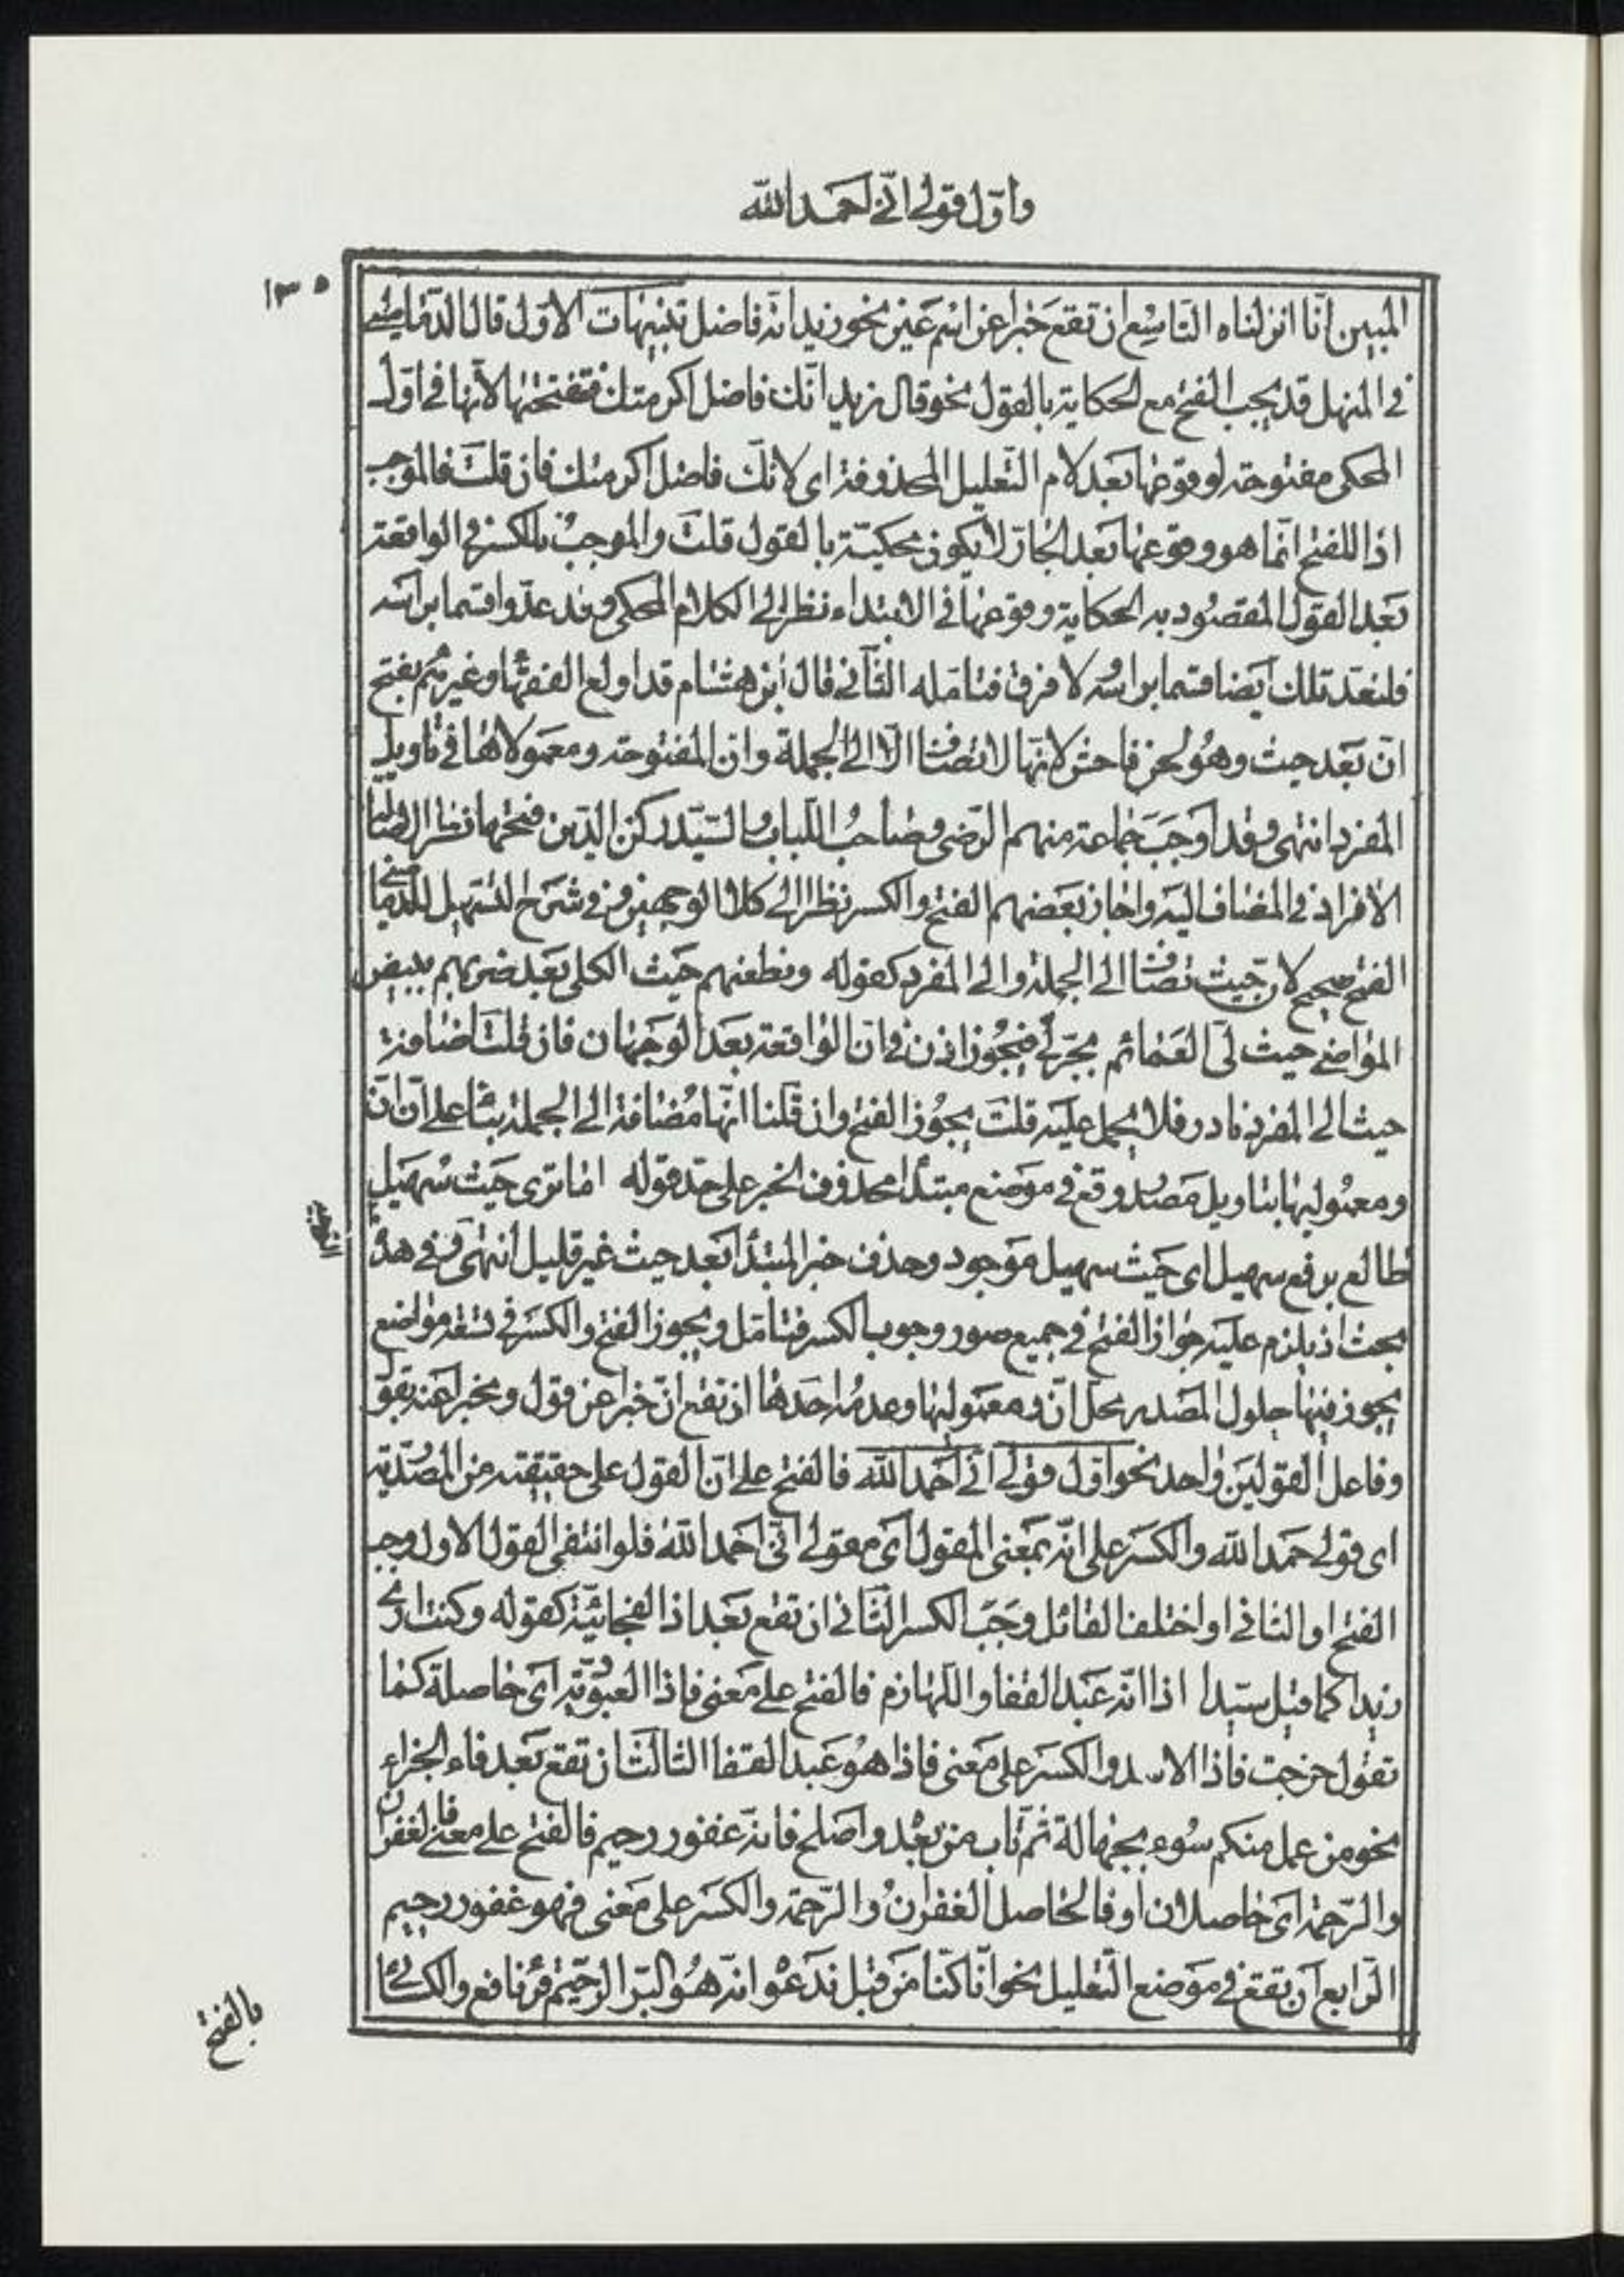 واوّل قولي انّي احمد الله
١٣٥
المبين انّا انزلناه التاسع ان تقع خبرا عن اسم عين نحو زيد انّه فاضل تنبيهات الاوّل قال الدّماميني
في المنهل قد يجب الفتح مع الحكاية بالقول نحو قال زيد انّك فاضل اكرمتك فتفتحها لانّها في اوّل
المحكي مفتوحة لوقوعها بعد لام التّعليل المحذوفة اي لانّك فاضل اكرمتك فان قلت فالموجب
اذا للفتح انّما هو وقوعها بعد الجارّ لا بكون محكيّة بالقول قلت والموجب بالكسر في الواقعة
بعد القول المقصود به الحكاية وقوعها في الابتداء نظرا الى الكلام المحكي وقد عدّوا قسما براسه
فلنعد تلك ايضا قسما براسه لا فرق فتامله الثّاني قال ابن هشام قد اولع الفقهاء وغيرهم بفتح
انّ بعد حيث وهو لحن فاحش لانّها لا تضاف الّا الى الجملة وانّ المفتوحة ومعمولاها في تاويل
المفرد انتهى وقد اوجب جماعة منهم الرّضي وصاحب اللّباب والسّيّد ركن الدّين فتحها نظرا الى اصالة
الافراد في المضاف اليه واجاز بعضهم الفتح والكسر نظرا الى كلا الوجهين وفي شرح التسهيل للدماميني
الفتح صحيح لانّ حيث تضاف الى الجملة والى المفرد كقوله ونطعنهم حيث الكلى بعد ضربهم ببيض
المواضي حيث ليّ العمائم بجرّ ليّ فيجوز اذن في انّ الواقعة بعد الوجهان فان قلت اضافة
حيث الى المفرد نادر فلا يحمل عليه قلت يجوز الفتح وان قلنا انّها مضافة الى الجملة بناء على انّ انّ
ومعموليها بتاويل مصدر وقع في موضع مبتدا محذوف الخبر على حدّ قوله اما ترى حيث سهيل
طالع برفع سهيل اي حيث سهيل موجود وحذف خبر المبتدا بعد حيث غير قليل انتهى وفي هذا
بحث اذ يلزم عليه جواز الفتح في جميع صور وجوب الكسر فتامّل ويجوز الفتح والكسر في تسعة مواضع
يجوز فيها حلول المصدر محلّ انّ ومعموليها وعدمه احدها ان تقع انّ خبرا عن قول ومخبرا عنه بقول
وفاعل القولين واحد نحو اوّل قولي انّي احمد الله فالفتح على انّ القول على حقيقته من المصدّية
اي قولي حمد الله والكسر على انّه بمعنى المقول اي مقولي انّي احمد الله فلو انتفى القول الاول وجب
الفتح او الثاني او اختلف القائل وجب الكسر الثّاني ان تقع بعد اذا الفجائيّة كقوله وكنت ارى
زيدا كما قيل سيّدا اذا انّه عبد القفا واللّهازم فالفتح على معنى فاذا العبوديّة اي حاصلة كما
تقول خرجت فاذا الاسد والكسر على معنى فاذا هو عبد القفا الثالث ان تقع بعد فاء الجزاء
نحو من عمل منكم سوء بجهالة ثمّ تاب من بعد واصلح فانّه غفور رحيم فالفتح على معنى فالغفران
والرّحمة اي حاصلان او فالحاصل الغفران والرّحمة والكسر على معنى فهو غفور رحيم
الرّابع ان تقع في موضع التّعليل نحو انّا كنّا من قبل ندعوا انّه هو البرّ الرّحيم قرا نافع والكسائي
بالفتح